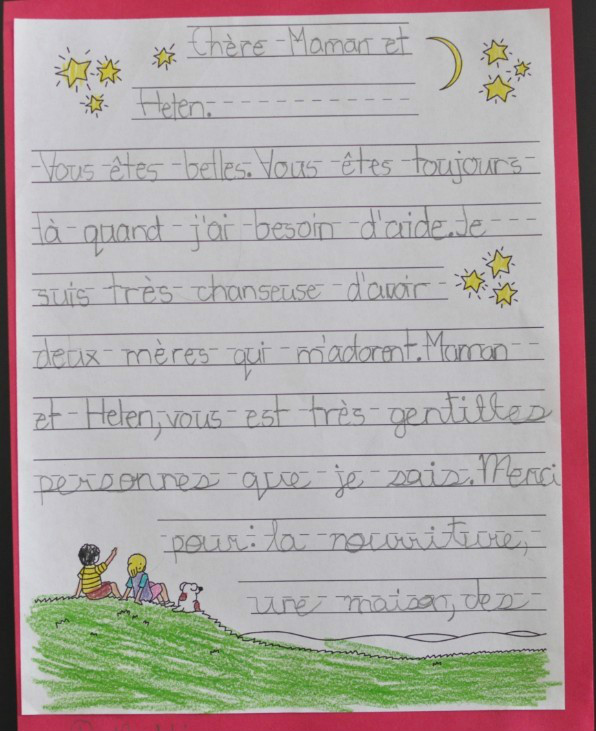 Chère Maman et
Helen.
Vous êtes belles. Vous êtes toujours
là quand j'ai besoin d'aide. Je
suis très chanseuse d'avoir
deux mères qui m'adorent. Maman
et Helen, vous est très gentilles
personnes que je sais. Merci
pour: la nourriture,
une maison, des